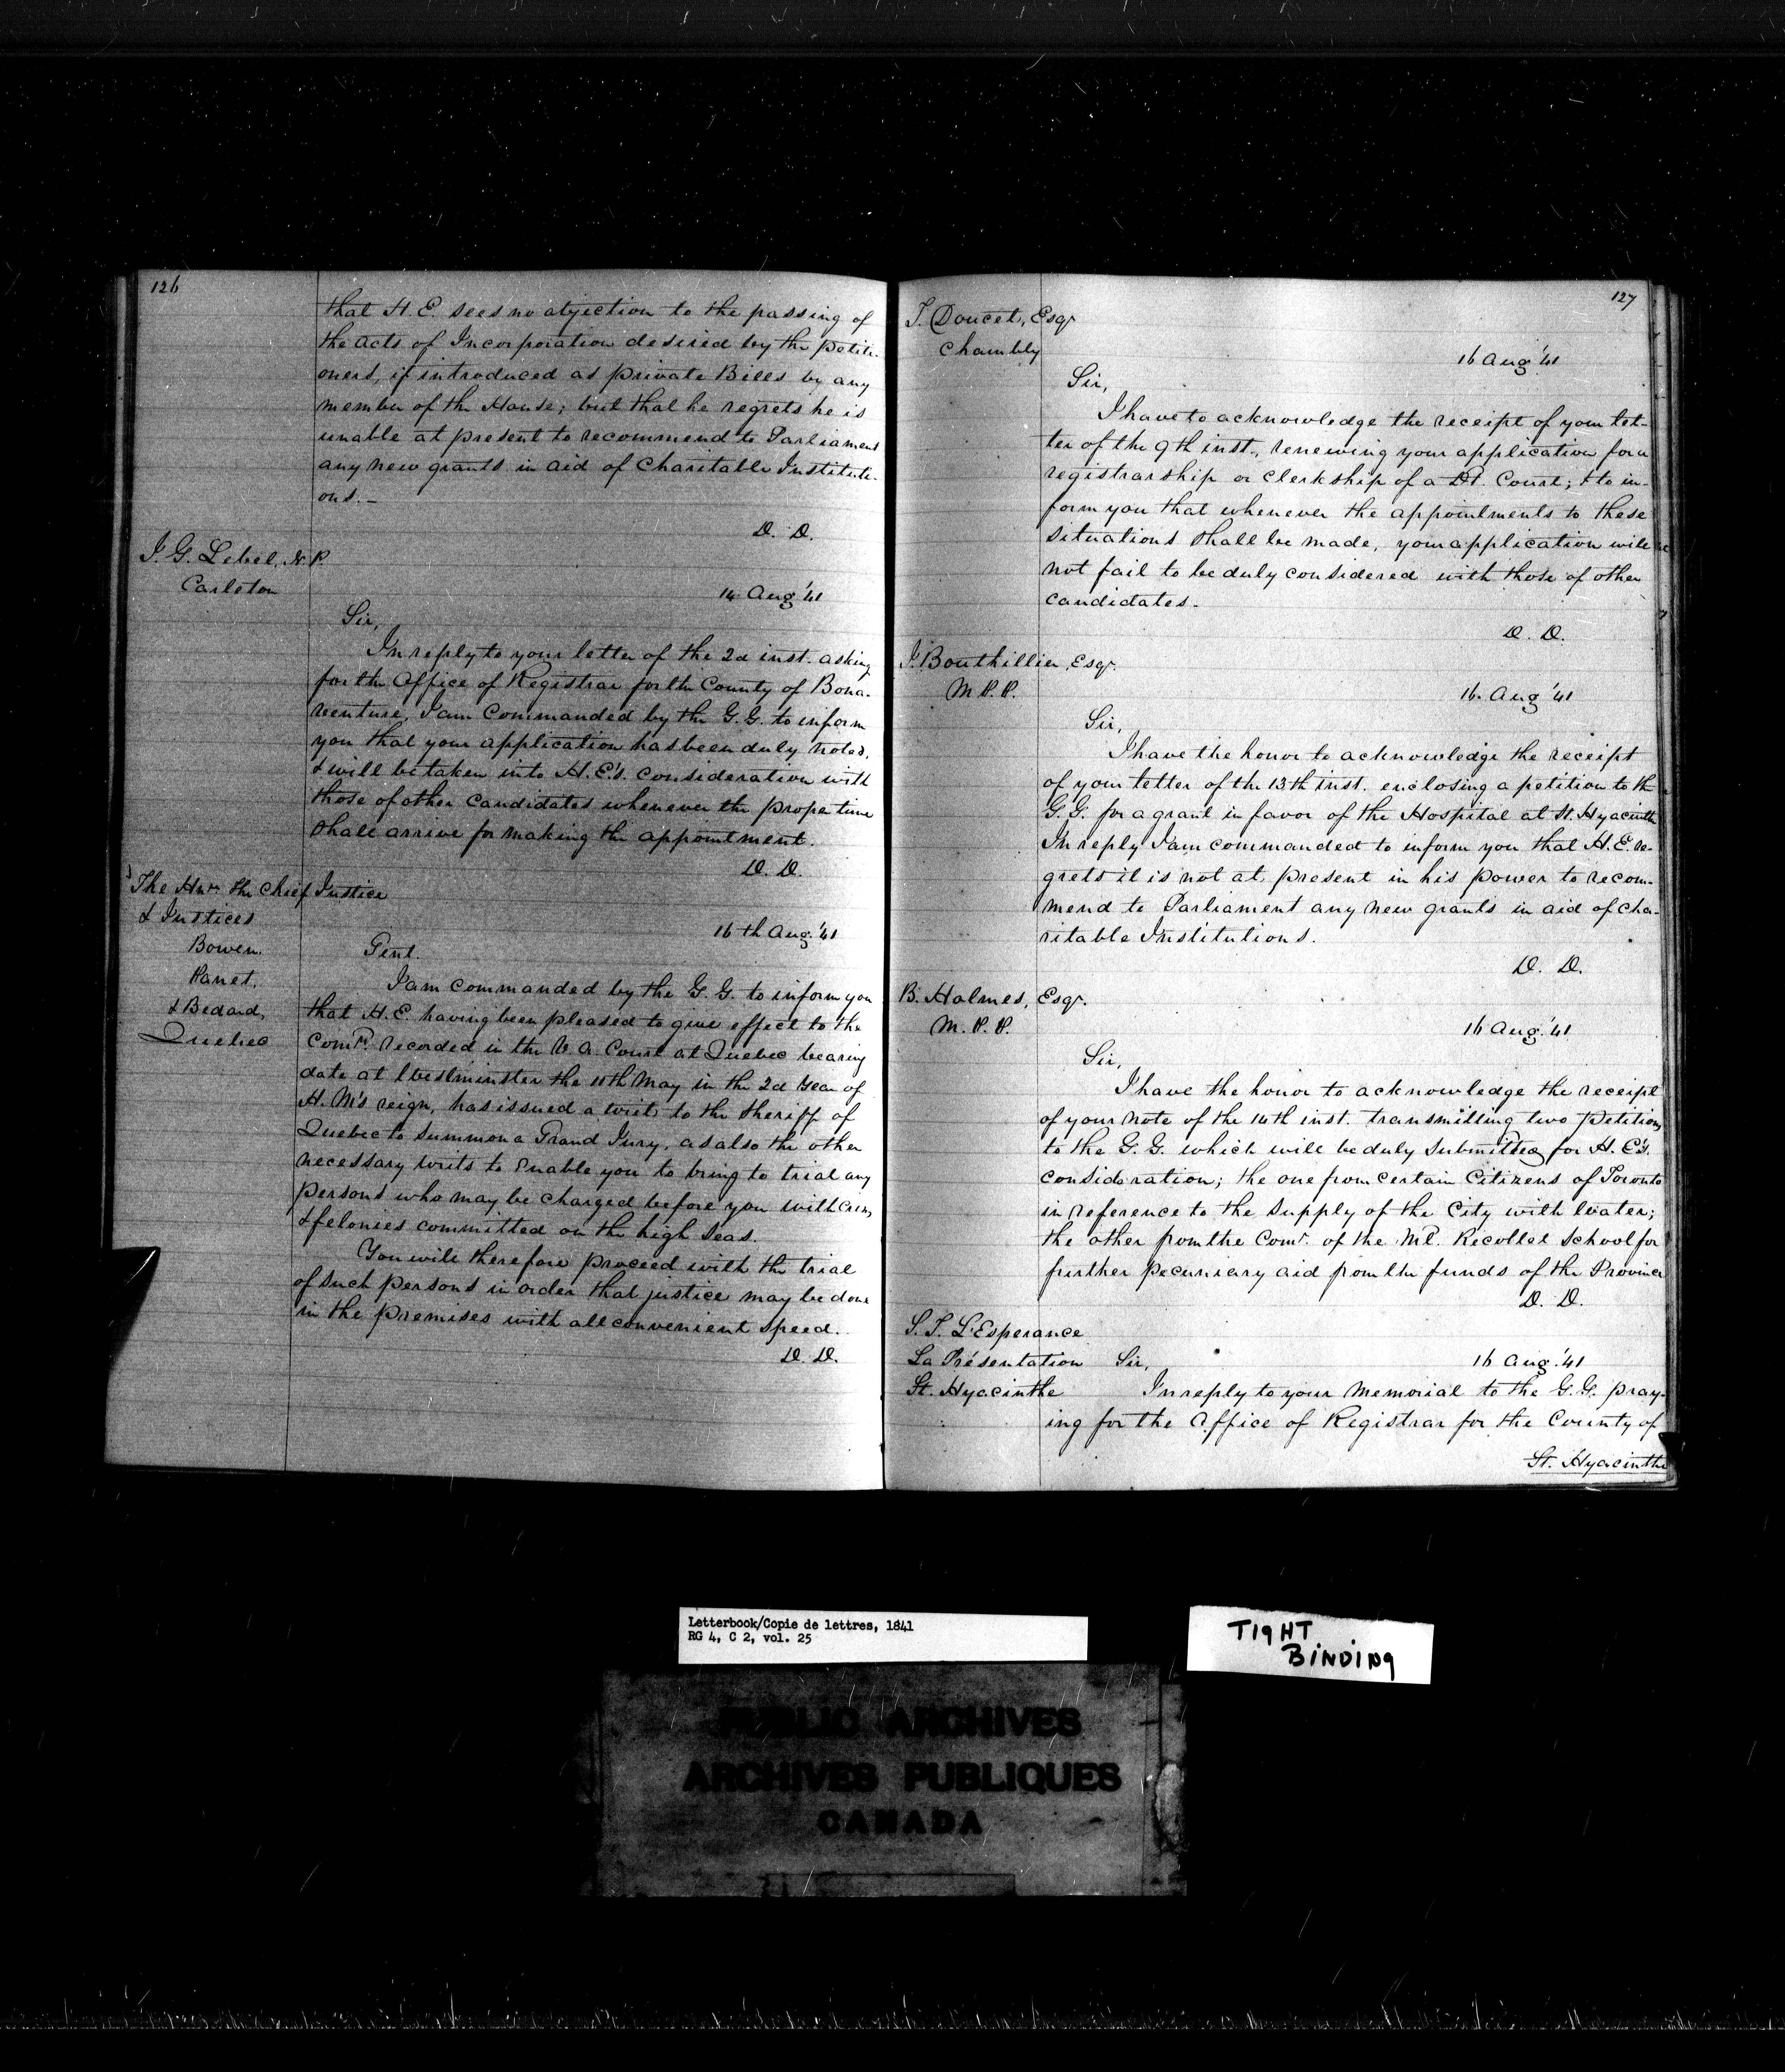 126
that H. E. sees no objection to the passing of
the acts of Incorporation desired by the petiti-
oners, if introduced as private Bills by any
member of the House; but that he regrets he is
unable at present to recommend to Parliament
any new grants in aid of Charitable Instituti-
ons.-
D. D.
J. G. Lebel, N. P.
Carleton
14 Aug '41
Sir,
In reply to your letter of the 2d inst. asking
for the Office of Registrar for the County of Bona-
venture, I am commanded by the G. G. to inform
you that your application has been duly noted,
& will be taken into H. E's. consideration with
those of other candidates whenever the proper time
shall arrive for making the appointment.
D. D.
The Hnr. the Chief Justice
& Justices
Bowen.
Panet,
& Bedard,
Quebec
16th Aug. '41
Gent.
I am commanded by the G. G. to inform you
that H. E. having been pleased to give effect to the
Comn. recorded in the V. A. Court at Quebec bearing
date at Westminster the 11th May in the 2d Year of
H. M's reign, has issued a writ to the Sheriff of
Quebec to summon a Grand Jury, as also the other
necessary writs to enable you to bring to trial any
persons who may be charged before you with crims
& felonies committed on the high Seas.
You will therefore proceed with the trial
of such persons in order that justice may be done
in the premises with all convenient speed.
D. D.
127
T. Doucet, Esqr
Chambly
16 Aug '41
Sir,
I have to acknowledge the receipt of your let-
ter of the 9th inst., renewing your application for a
registrarship or clerkship of a Dt. Court; & to in-
form you that whenever the appointments to these
situations shall be made, your application will
not fail to be duly considered with those of other
candidates.
D. D.
T. Bouthillier, Esqr.
M. P. P.
16. Aug '41
Sir,
I have the honor to acknowledge the receipt
of your letter of the 13th inst. enclosing a petition to the
G. G. for a grant in favor of the Hospital at St. Hyacinthe
In reply I am commanded to inform you that H. E. re-
grets it is not at present in his power to recom-
mend to Parliament any new grants in aid of cha-
ritable Institutions.
D. D.
B. Holmes, Esqr.
M. P. P.
16 Aug. '41
Sir,
I have the honor to acknowledge the receipt
of your note of the 14th inst. transmitting two petitions
to the G. G. which will be duly submitted for H. E's.
consideration; the one from certain Citizens of Toronto
in reference to the supply of the City with Water;
the other from the Comr. of the Ml. Recollet School for
further pecuniary aid from the funds of the Province
D. D.
S. T. L'Esperance
La Présentation
St. Hyacinthe
Sir,
16 Aug. '41
In reply to your memorial to the G. G. pray-
ing for the Office of Registrar for the County of
St. Hyacinthe
Letterbook/Copie de lettres, 1841
RG 4, C 2, vol. 25
TIGHT
BINDING
PUBLIC ARCHIVES
ARCHIVES PUBLIQUES
CANADA